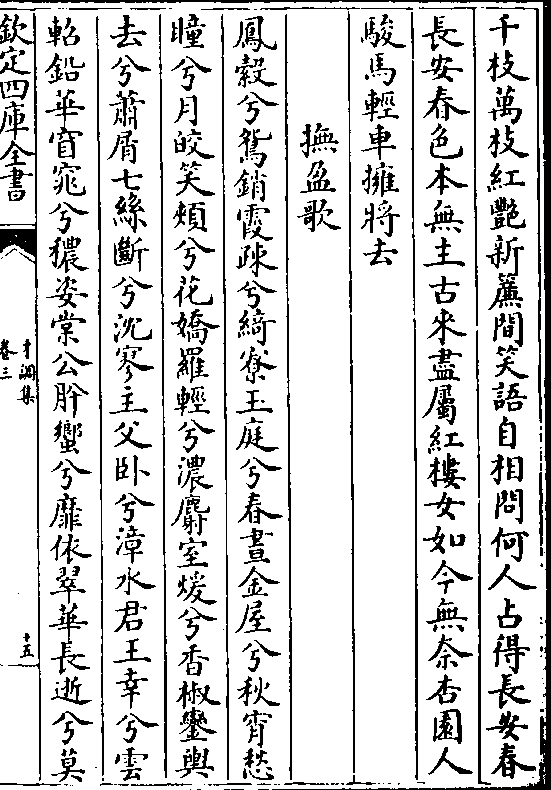 千枝萬枝紅艷新簾間笑語自相問何人占得長安春
長安春色本無主古來盡屬紅樓女如今無奈杏園人
駿馬輕車擁將去
撫盈歌
鳳縠兮鴛銷霞疎兮綺寮玉庭兮春晝金屋兮秋宵愁
瞳兮月皎笑頰兮花嬌羅輕兮濃麝室煖兮香椒鑾輿
去兮蕭屑七絲斷兮沈寥主父卧兮漳水君王幸兮雲
軺鉛華窅窕兮穠姿棠公肸蠁兮靡依翠華長逝兮莫
欽定四庫全書
卷三
十五